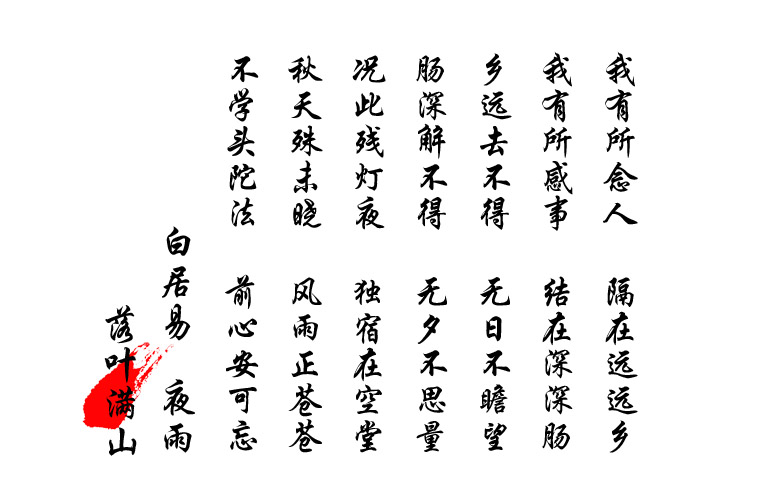 我有所念人 隔在远远乡
我有所感事 结在深深肠
乡远去不得 无日不瞻望
肠深解不得 无夕不思量
况此残灯夜 独宿在空堂
秋天殊未晓 风雨正苍苍
不学头陀法 前心安可忘
白居易 夜雨
落叶满山